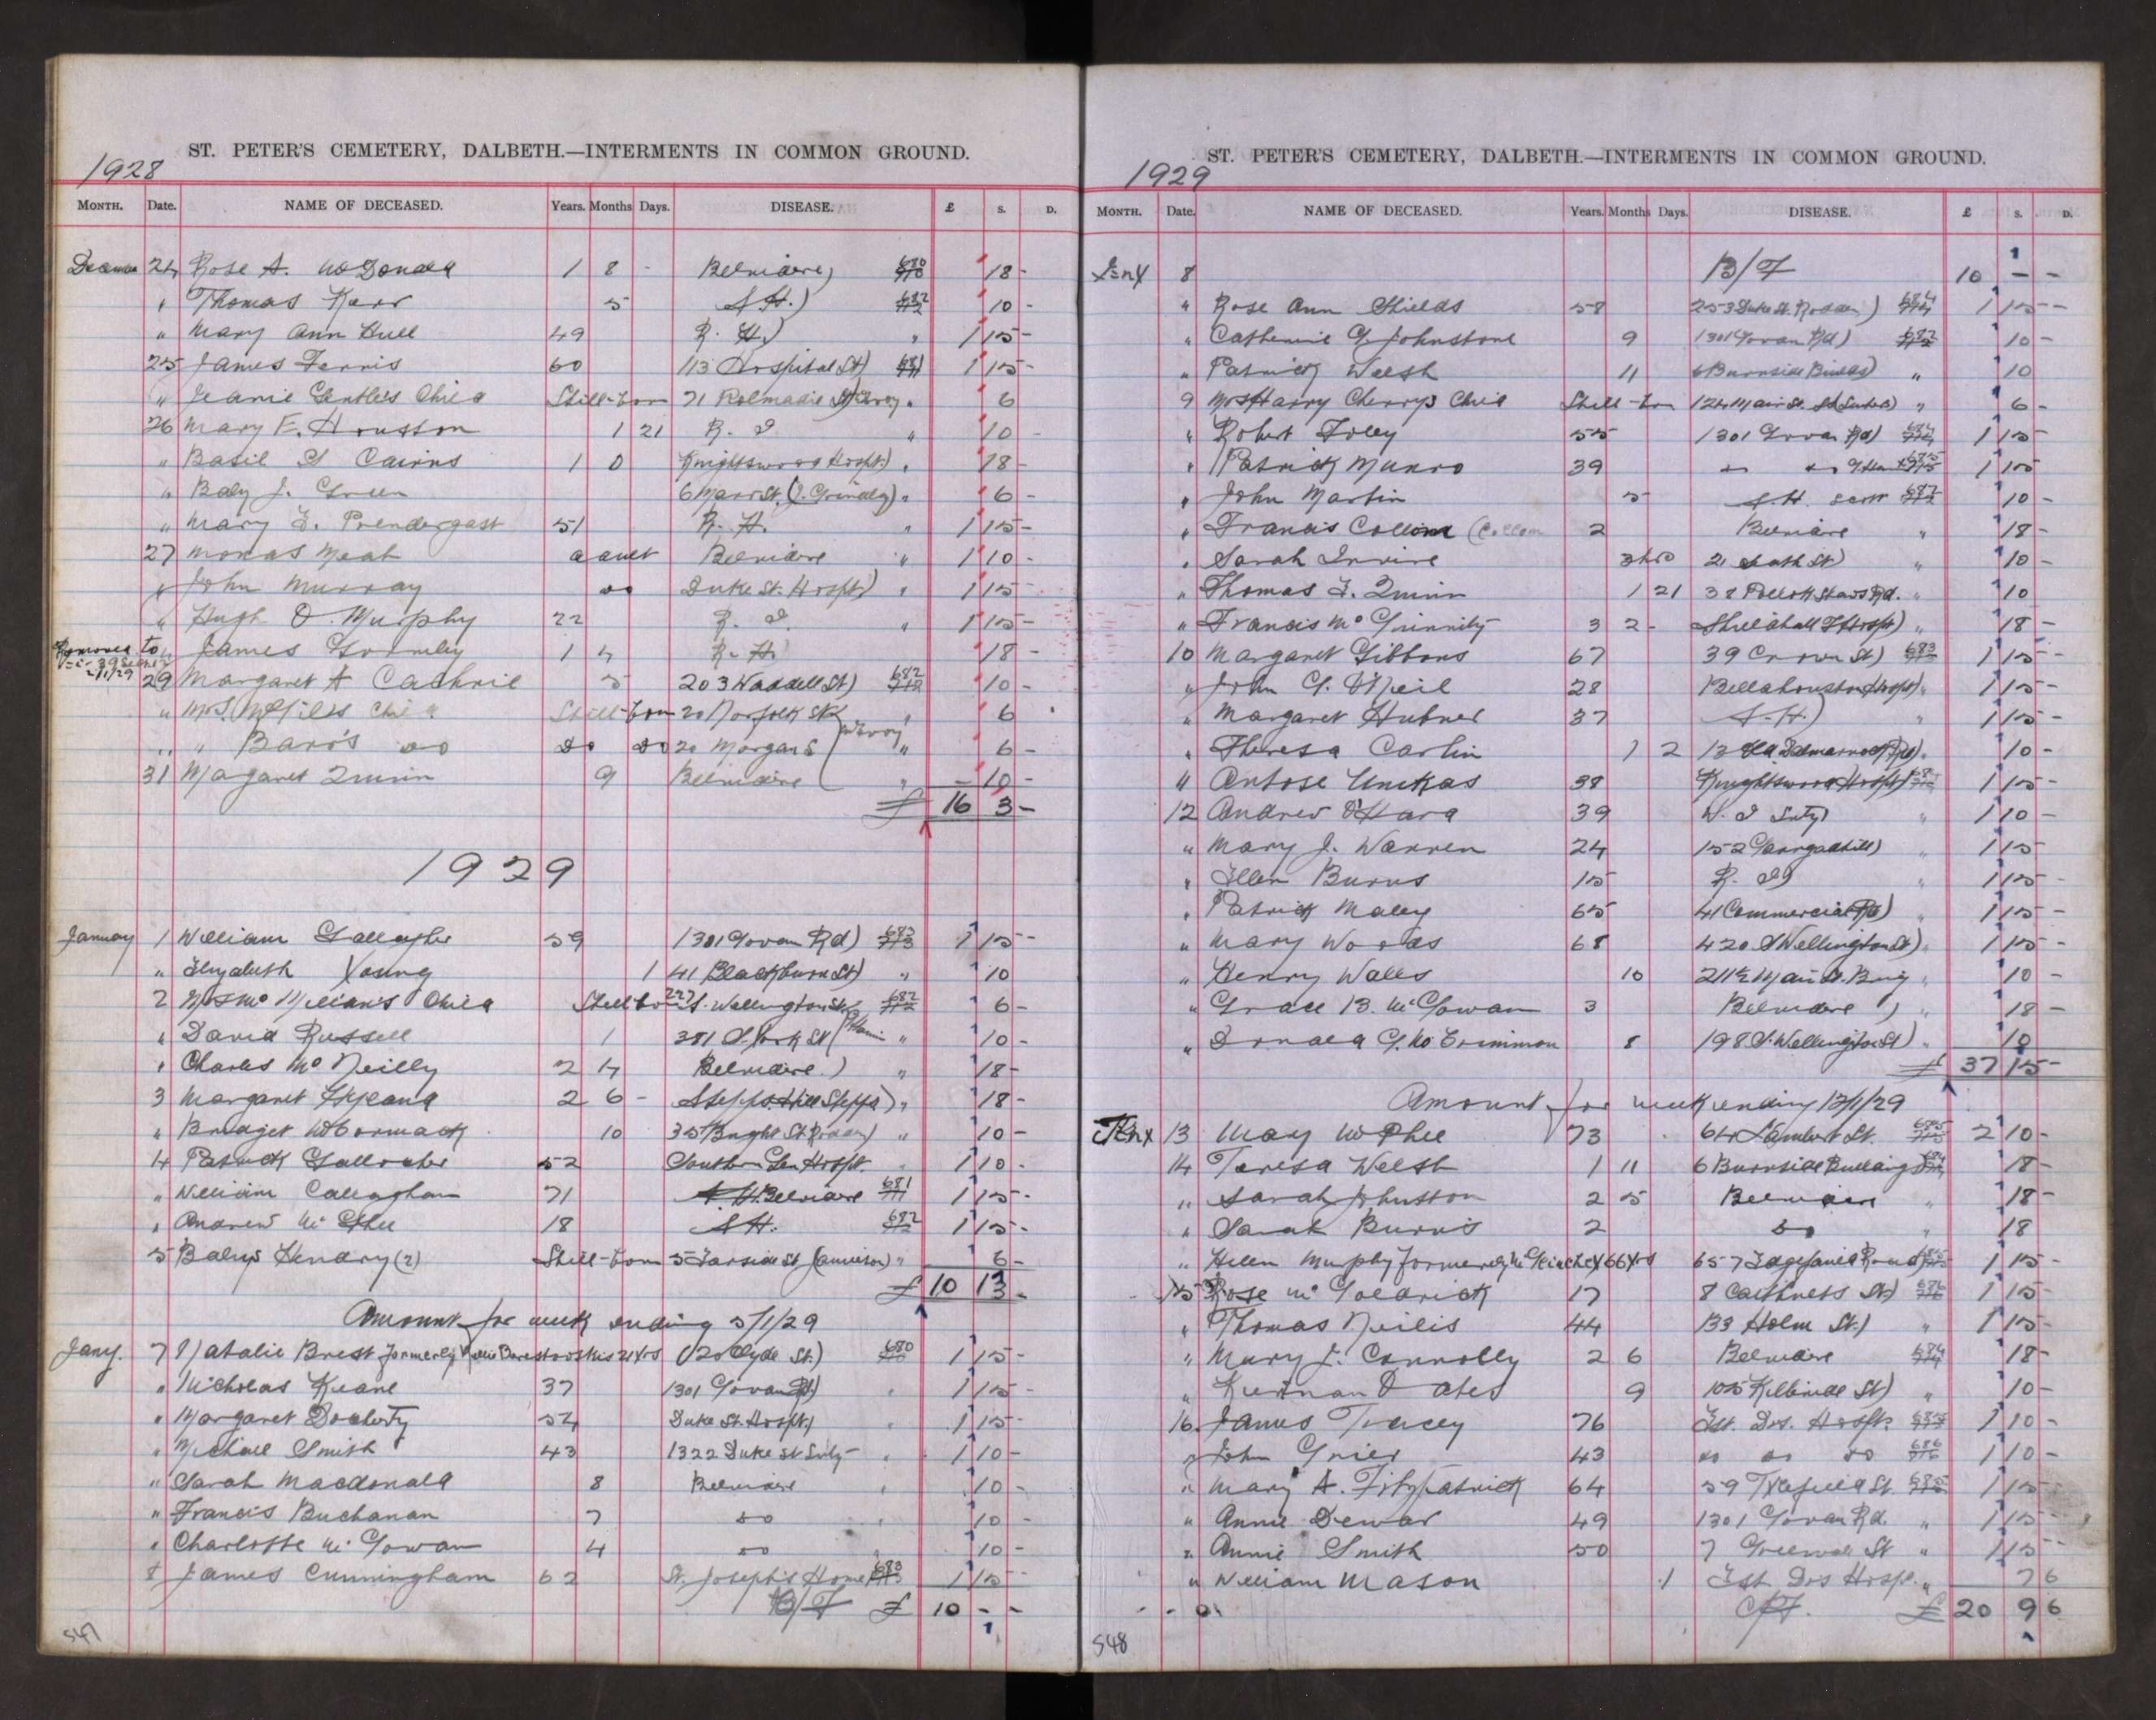 ST. PETER'S CEMETERY, DALBETH.—INTERMENTS IN COMMON GROUND.
1928
MONTH. Date. NAME OF DECEASED. Years. Months Days. DISEASE. £ s. D.
24 Rose A. McDonald 1 8 - Belvidere) 680 18 -
" Thomas Kerr 5 S.H.) 682 10 -
" Mary Ann Hull 49 R. H.) " 1 15 -
25 James Ferris 60 113 Hospital St) 681 1 15 -
" Jeanie Gentle's Child Still-born 71 " 6
26 Mary E. Houston 1 21 R. I. " 10 -
" Basil St Cairns 1 0 Knightswood Hospt.) " 18 -
" Baby J. Green 6 Marr St. " 6 -
" Mary E. Prendergast 51 R. H. " 1 15 -
27 adult Belvidere " 1 10 -
" John Murray do Duke St. Hospt) " 1 15 -
" Hugh O. Murphy 22 R. I. " 1 15 -
Removed to " James Gormley 1 4 R. H. 18 -
2/1/29
29 Margaret A 5 203 Waddell St) 682 10 -
" Mrs. Child Still-born 20 Norfolk St " 6
" " Barr's do do do 20 Morgan S " 6 -
31 Margaret Quinn 9 Belvidere " - 10 -
£ 16 3 -
1929
January 1 William Gallagher 59 1301 Govan Rd) 683 1 15 -
" Elizabeth Young 1 41 Blackburn St) " 10
2 Mrs Mc Child Still born 227 S. Wellington St. 682 6 -
" David Russell 1 381 S. York St " 10 -
" Charles McNeilly 2 4 Belvidere.) " 18 -
3 Margaret 2 6 - " 18 -
" Bridget McCormack 10 35 Bright St " 10 -
4 Patrick Gallocher 52 Southern Gen Hospt. " 1 10 -
" William Callaghan 71 Belvidere 681 1 15 -
" Andrew McGhee 18 S.H. 682 1 15 -
5 Babys Hendry (2) Still-born 5 St (Jamieson) " 6 -
£ 10 13 -
Amount for week ending 5/1/29
Jany. 7 Natalie Brest formerly 21 yrs (20 Clyde St.) 680 1 15 -
" Nicholas Keane 37 1301 Govan Rd) " 1 15 -
" Margaret Docherty 54 Duke St. Hospt.) 1 15 -
" Michael Smith 43 1322 Duke St " 1 10 -
" Sarah Macdonald 8 Belvidere " 10 -
" Francis Buchanan 7 do " 10 -
" Charlotte McGowan 4 do " 10 -
8 James Cunningham 62 St. Joseph's Home 683 1 15 -
B/F £ 10 - -
547
ST. PETER'S CEMETERY, DALBETH.—INTERMENTS IN COMMON GROUND.
1929
MONTH. Date. NAME OF DECEASED. Years. Months Days. DISEASE. £ s. D.
Jany 8 B/F 10 - -
" Rose Ann Shields 58 253 Duke St. 684 1 15 -
" Catherine G. Johnstone 9 1301 Govan Rd) 682 10 -
" Patrick Welsh 11 6 Burnside Builds) " 10
9 Mrs Harry Cherry's Child Still-born 124 Main St. " 6 -
" Robert Foley 55 1301 Govan Rd) 684 1 15
" Patrick Munro 39 do do 685 1 15
" John Martin 5 S.H. 682 10 -
" Francis Collom (Collom 2 Belvidere " 18 -
" Sarah Irvine 3 hrs 21 South St) " 10 -
" Thomas F. Quinn 1 21 38 Pollokshaws Rd. " 10
" Francis McGuinnity 3 2 - Shieldhall Hosp) " 18 -
10 Margaret Gibbons 67 39 Crown St) 683 1 15 -
" John G. O'Neil 28 Bellahouston Hospt) " 1 15 -
" Margaret Hubner 37 S.H.) " 1 15 -
" Theresa Carlin 1 2 13 Old Dalmarnock Rd) " 10 -
11 Antose Unikas 38 Knightswood Hospt) 1 15 -
12 Andrew O'Hara 39 W. I. " 1 10 -
" Mary J. Warren 24 152 Garngadhill) " 1 15
" Ellen Burns 15 R. I) " 1 15 -
" Patrick Maley 65 41 Commercial Rd) " 1 15 -
" Mary Woods 68 420 S Wellington St) " 1 15 -
" Henry Walls 10 211½ Main St. " 10 -
" Grace B. McGowan 3 Belvidere) " 18 -
" Donald G. McCrimmon 8 198 S. Wellington St) " 10
£ 37 15 -
Amount for week ending 12/1/29
13 May McPhee 73 64 Lambert St. 685 2 10 -
14 Teresa Welsh 1 11 6 Burnside Building 684 18 -
" Sarah Johnston 2 5 Belvidere " 18 -
" Sarah Burns 2 do " 18
" Helen Murphy formerly 66 yrs 657 685 1 15 -
15 Rose McGoldrick 17 8 Caithness St) 686 1 15 -
" Thomas Neilis 44 133 Holm St.) " 1 15 -
" Mary J. Connolly 2 6 Belvidere 684 18 -
" Kiernan O 9 105 Kilbride St) " 10 -
16 James Tracey 76 Est. Dis. Hospt. 1 10 -
" John Grier 43 do do do 686 1 10 -
" Mary A. Fitzpatrick 64 59 St. 685 1 15 -
" Annie Dewar 49 1301 Govan Rd. " 1 15 -
" Annie Smith 50 7 St " 1 15 -
" William Mason 1 Est Dis Hosp. " 7 6
£ 20 9 6
548